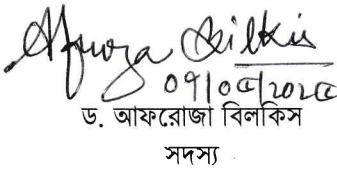 Afroza Bilkis
০৭/০৫/২০২৫
ড. আফরোজা বিলকিস
সদস্য